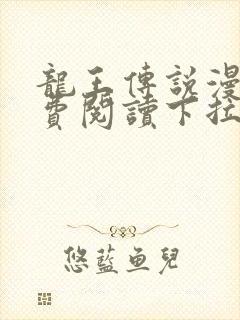 龍王傳說漫
費閱讀下拉
悠藍魚兒